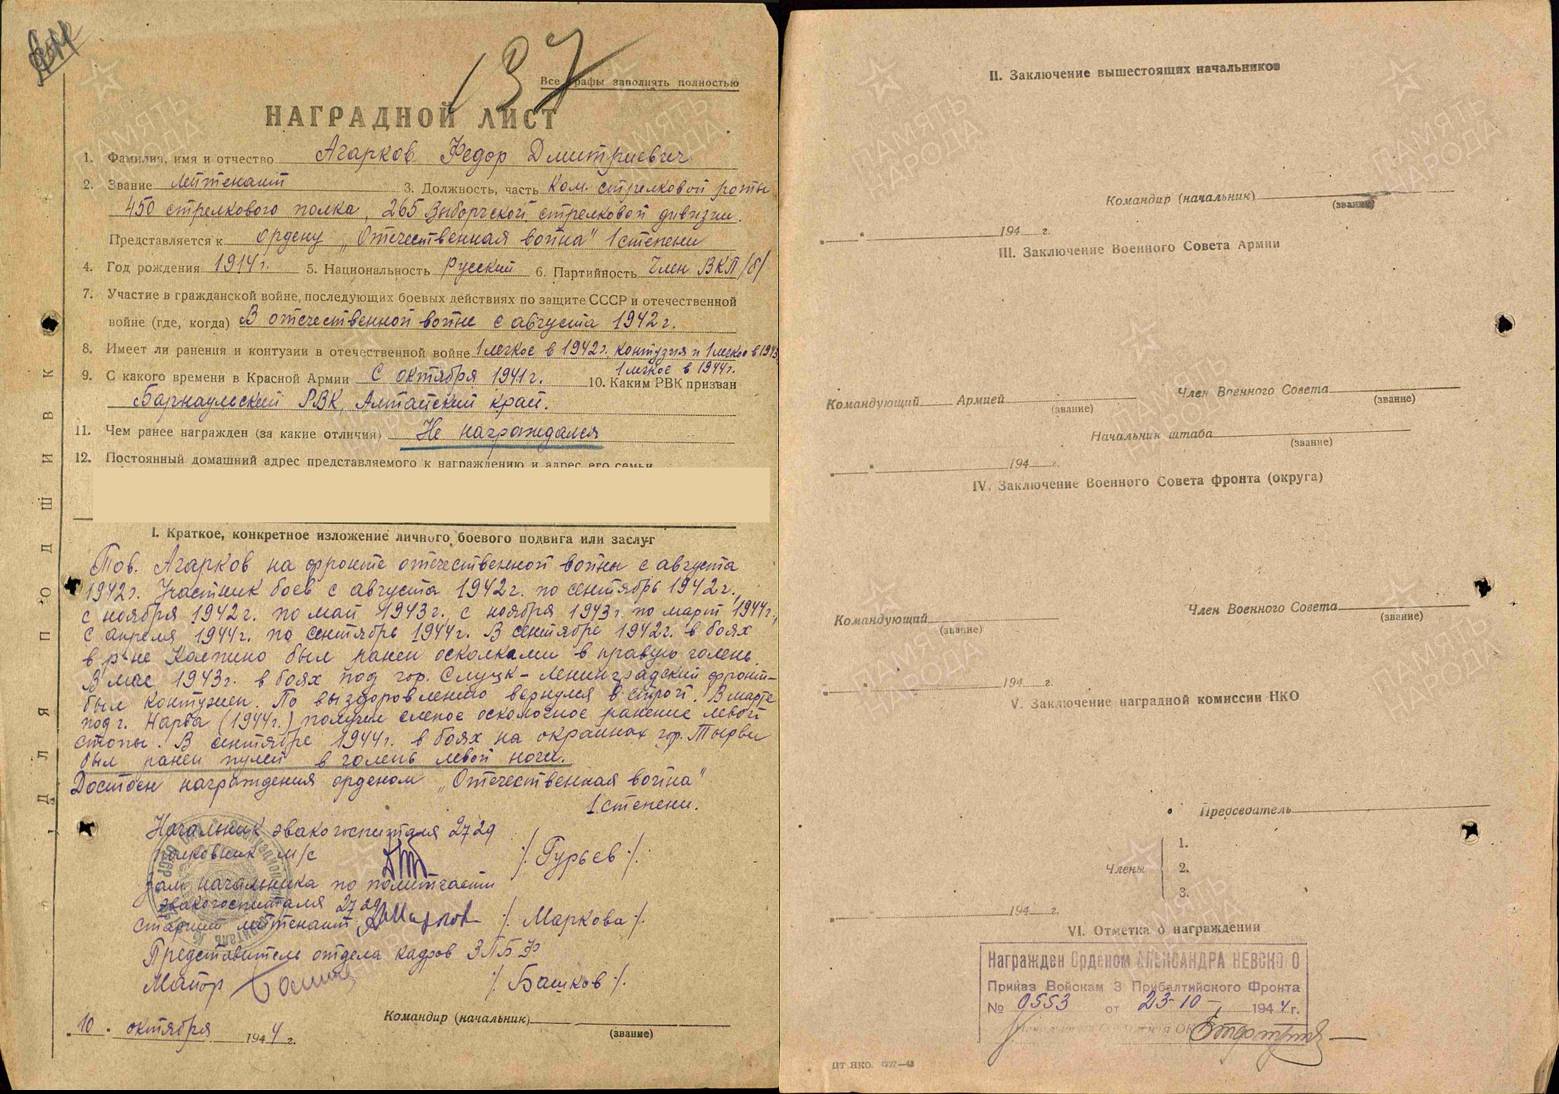 137
Все графы заполнять полностью
НАГРАДНОЙ ЛИСТ
1. Фамилия, имя и отчество Агарков Федор Дмитриевич
2. Звание лейтенант 3. Должность, часть Ком. стрелковой роты
450 стрелкового полка, 265 Выборгской стрелковой дивизии.
Представляется к ордену „Отечественная война" 1 степени
4. Год рождения 1914 г. 5. Национальность Русский 6. Партийность Член ВКП/б/
7. Участие в гражданской войне, последующих боевых действиях по защите СССР и отечественной
войне (где, когда) В отечественной войне с августа 1942 г.
8. Имеет ли ранения и контузии в отечественной войне 1 легкое в 1942 г. контузия и 1 легкое в 1943
1 легкое в 1944 г.
9. С какого времени в Красной Армии С октября 1941 г. 10. Каким РВК призван
Барнаульский РВК, Алтайский край.
11. Чем ранее награжден (за какие отличия) Не награждался
12. Постоянный домашний адрес представляемого к награждению и адрес его семьи
I. Краткое, конкретное изложение личного боевого подвига или заслуг
Тов. Агарков на фронте отечественной войны с августа
1942 г. Участник боев с августа 1942 г. по сентябрь 1942 г.,
с ноября 1942 г. по май 1943 г. с ноября 1943 г. по март 1944 г.,
с апреля 1944 г. по сентябрь 1944 г. В сентябре 1942 г. в боях
в р-не Колпино был ранен осколками в правую голень.
В мае 1943 г. в боях под гор. Слуцк - Ленинградский фронт-
был контужен. По выздоровлению вернулся в строй. В марте
под г. Нарва (1944 г.) получил слепое осколочное ранение левой
стопы. В сентябре 1944 г. в боях на окраинах гор. Тырва
был ранен пулей в голень левой ноги.
Достоен награждения орденом „Отечественная война"
1 степени.
Начальник эвакогоспиталя 2729
полковник м/с /Гурьев/.
Зам. начальника по политчасти
эвакогоспиталя 2729
старший лейтенант /Маркова/.
Представитель отдела кадров 3 ПБФ
Майор /Башков/.
Командир (начальник)
(звание)
10. октября 1944 г.
ДЛЯ ПОДШИВКИ
II. Заключение вышестоящих начальников
Командир (начальник)
(звание)
194 г.
III. Заключение Военного Совета Армии
Командующий Армией
(звание)
Член Военного Совета
(звание)
Начальник штаба
(звание)
194 г.
IV. Заключение Военного Совета фронта (округа)
Командующий
(звание)
Член Военного Совета
(звание)
194 г.
V. Заключение наградной комиссии НКО
Председатель
Члены
1.
2.
3.
194 г.
VI. Отметка о награждении
Награжден Орденом АЛЕКСАНДРА НЕВСКОГО
Приказ Войскам 3 Прибалтийского Фронта
№ 0553 от 23-10- 1944 г.
ПАМЯТЬ НАРОДА